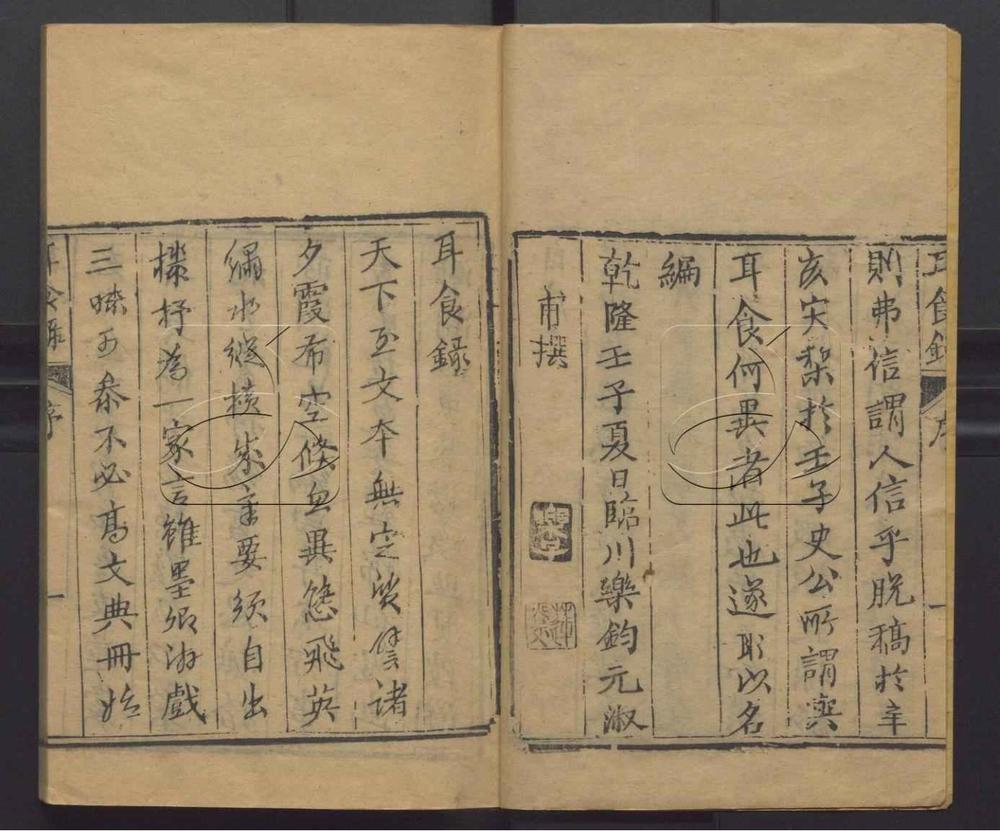 耳食錄
序
一
則弗信謂人信乎脫稿於辛
亥宋槧於壬子史公所謂與
耳食何異者此也遂取以名
編
乾隆壬子夏日臨川樂鈞元淑
甫撰
耳食錄
天下至文本無定質譬諸
夕霞布空倏無異態飛英
繡水縱橫成章要須自出
機抒為一家言雖墨卿游戲
三昧可參不必高文典冊始
耳食錄
序
一